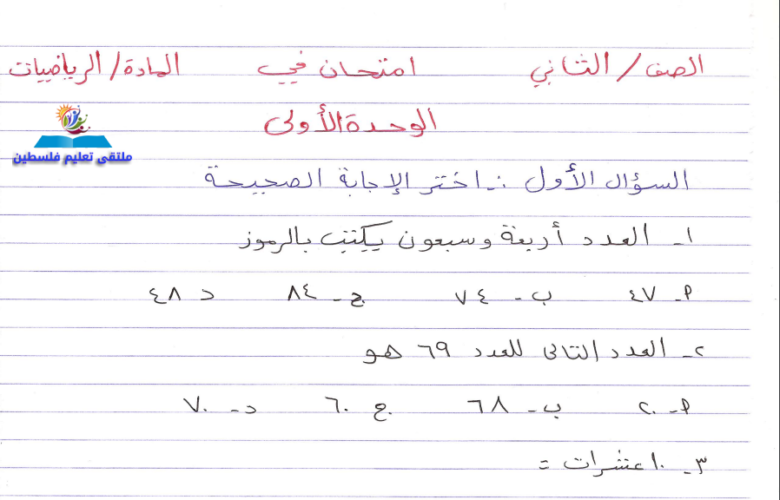 الصف / الثاني امتحان في المادة / الرياضيات
الوحدة الأولى
ملتقى تعليم فلسطين
السؤال الأول :- اختر الإجابة الصحيحة
١- العدد أربعة وسبعون يكتب بالرموز
P- ٤٧ ب- ٧٤ ج- ٨٤ د ٤٨
٢- العدد التالي للعدد ٦٩ هو
P- ٢٠ ب- ٦٨ ج ٦٠ د- ٧٠
٣- ١٠ عشرات =